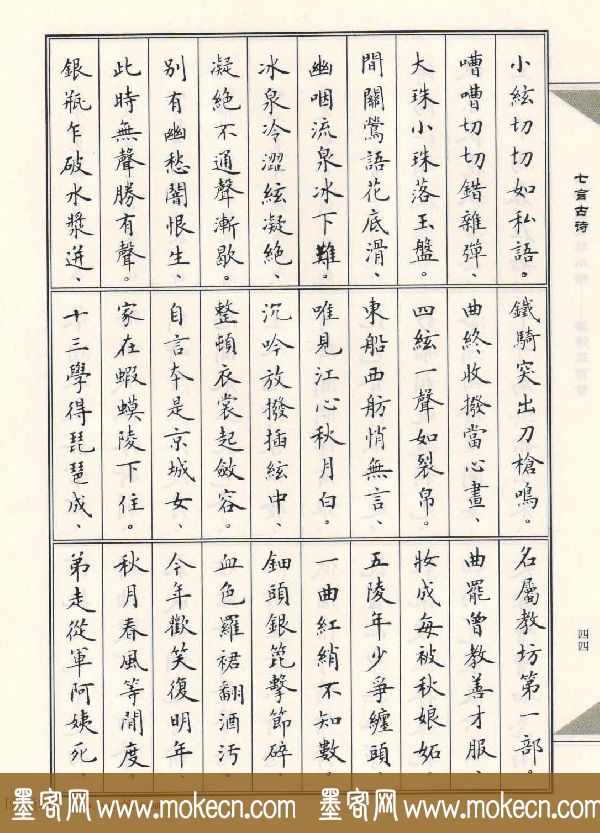 小絃切切如私語。
嘈嘈切切錯雜彈、
大珠小珠落玉盤。
間關鶯語花底滑、
幽咽流泉冰下難。
冰泉冷澀絃凝絶、
凝絶不通聲漸歇。
別有幽愁闇恨生、
此時無聲勝有聲。
銀瓶乍破水漿迸、
鐵騎突出刀槍鳴。
曲終收撥當心畫、
四絃一聲如裂帛。
東船西舫悄無言、
唯見江心秋月白。
沉吟放撥插絃中、
整頓衣裳起斂容。
自言本是京城女、
家在蝦蟆陵下住。
十三學得琵琶成、
名屬教坊第一部。
曲罷曾教善才服、
妝成每被秋娘妬。
五陵年少爭纏頭、
一曲紅綃不知數。
鈿頭銀篦擊節碎、
血色羅裙翻酒污。
今年歡笑復明年、
秋月春風等閒度。
弟走從軍阿姨死、
七言古诗
四四
墨客网 www.mokecn.com 墨客网 www.mokecn.com